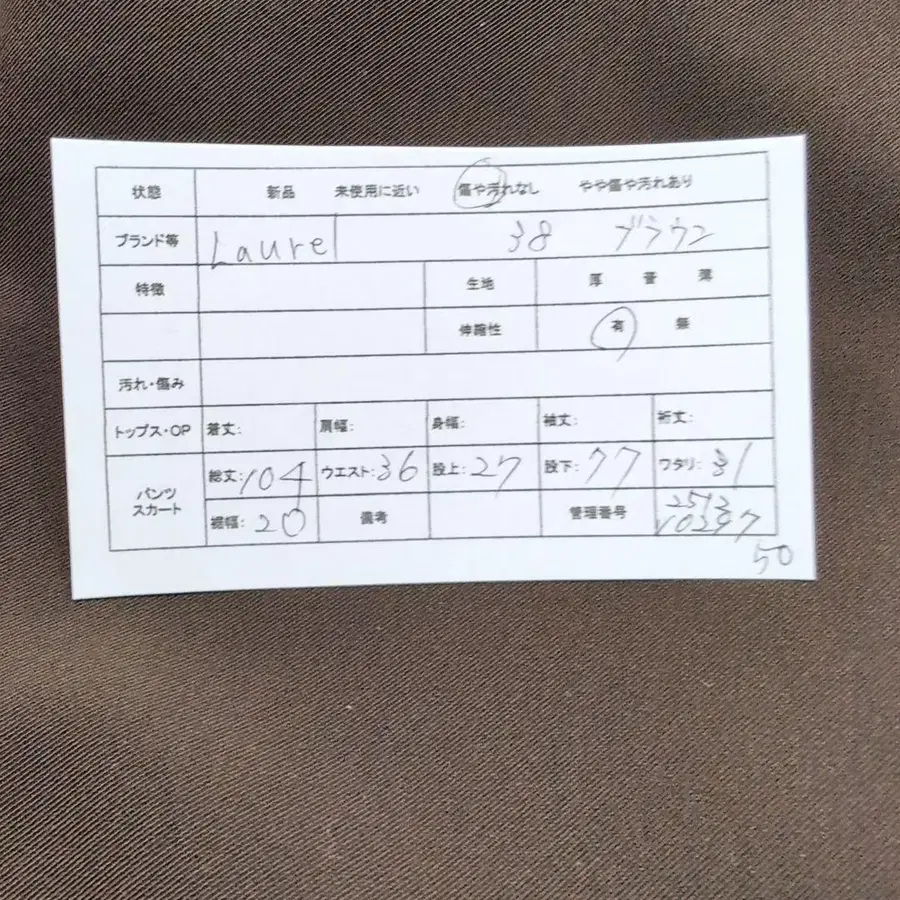 状態 新品 未使用に近い 傷や汚れなし やや傷や汚れあり
ブランド等 Laurel 38 ブラウン
特徴 生地 厚 普 薄
伸縮性 有 無
汚れ・傷み
トップス・OP 着丈: 肩幅: 身幅: 袖丈: 裄丈:
パンツ スカート 総丈:104 ウエスト:36 股上:27 股下:77 ワタリ:31
裾幅:20 備考 管理番号 2513
10297
50